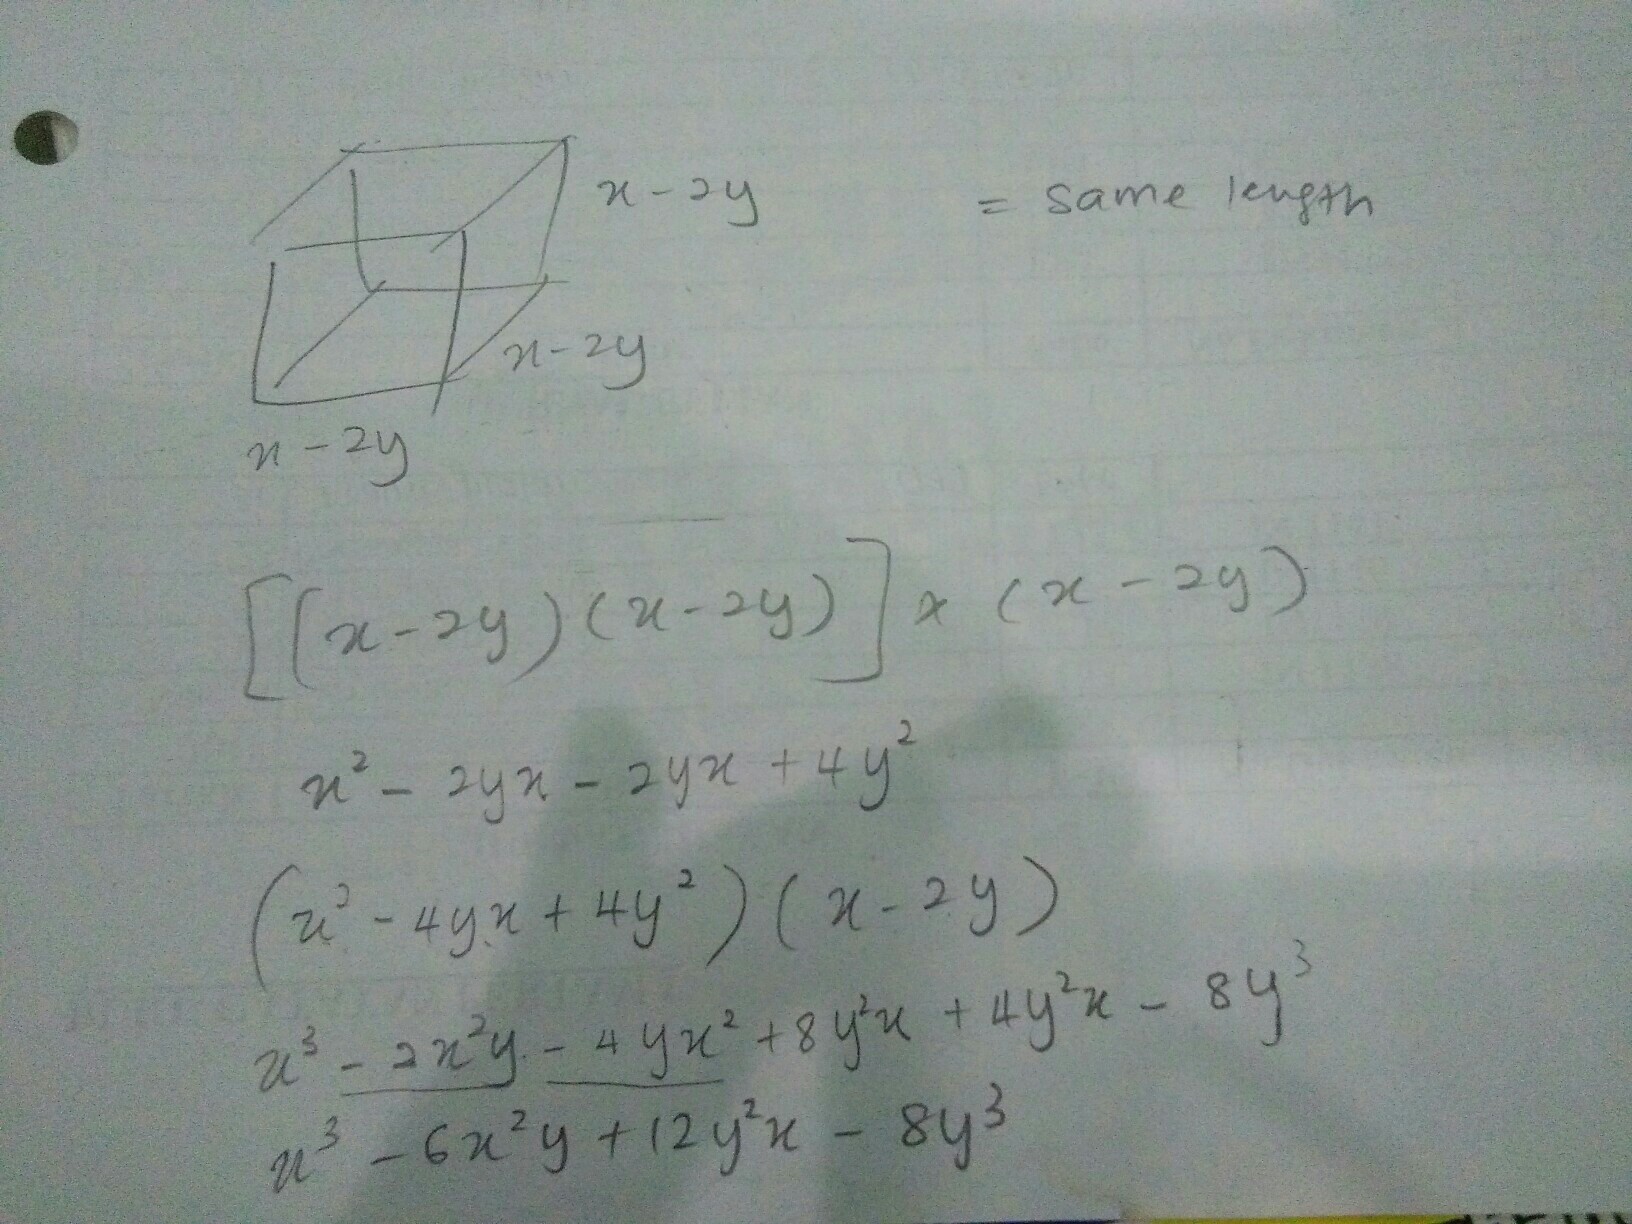 x-2y = same length
x-2y
x-2y
[(x-2y)(x-2y)] × (x-2y)
x² - 2yx - 2yx + 4y²
(x² - 4yx + 4y²)(x-2y)
x³ - 2x²y - 4yx² + 8y²x + 4y²x - 8y³
x³ - 6x²y + 12y²x - 8y³